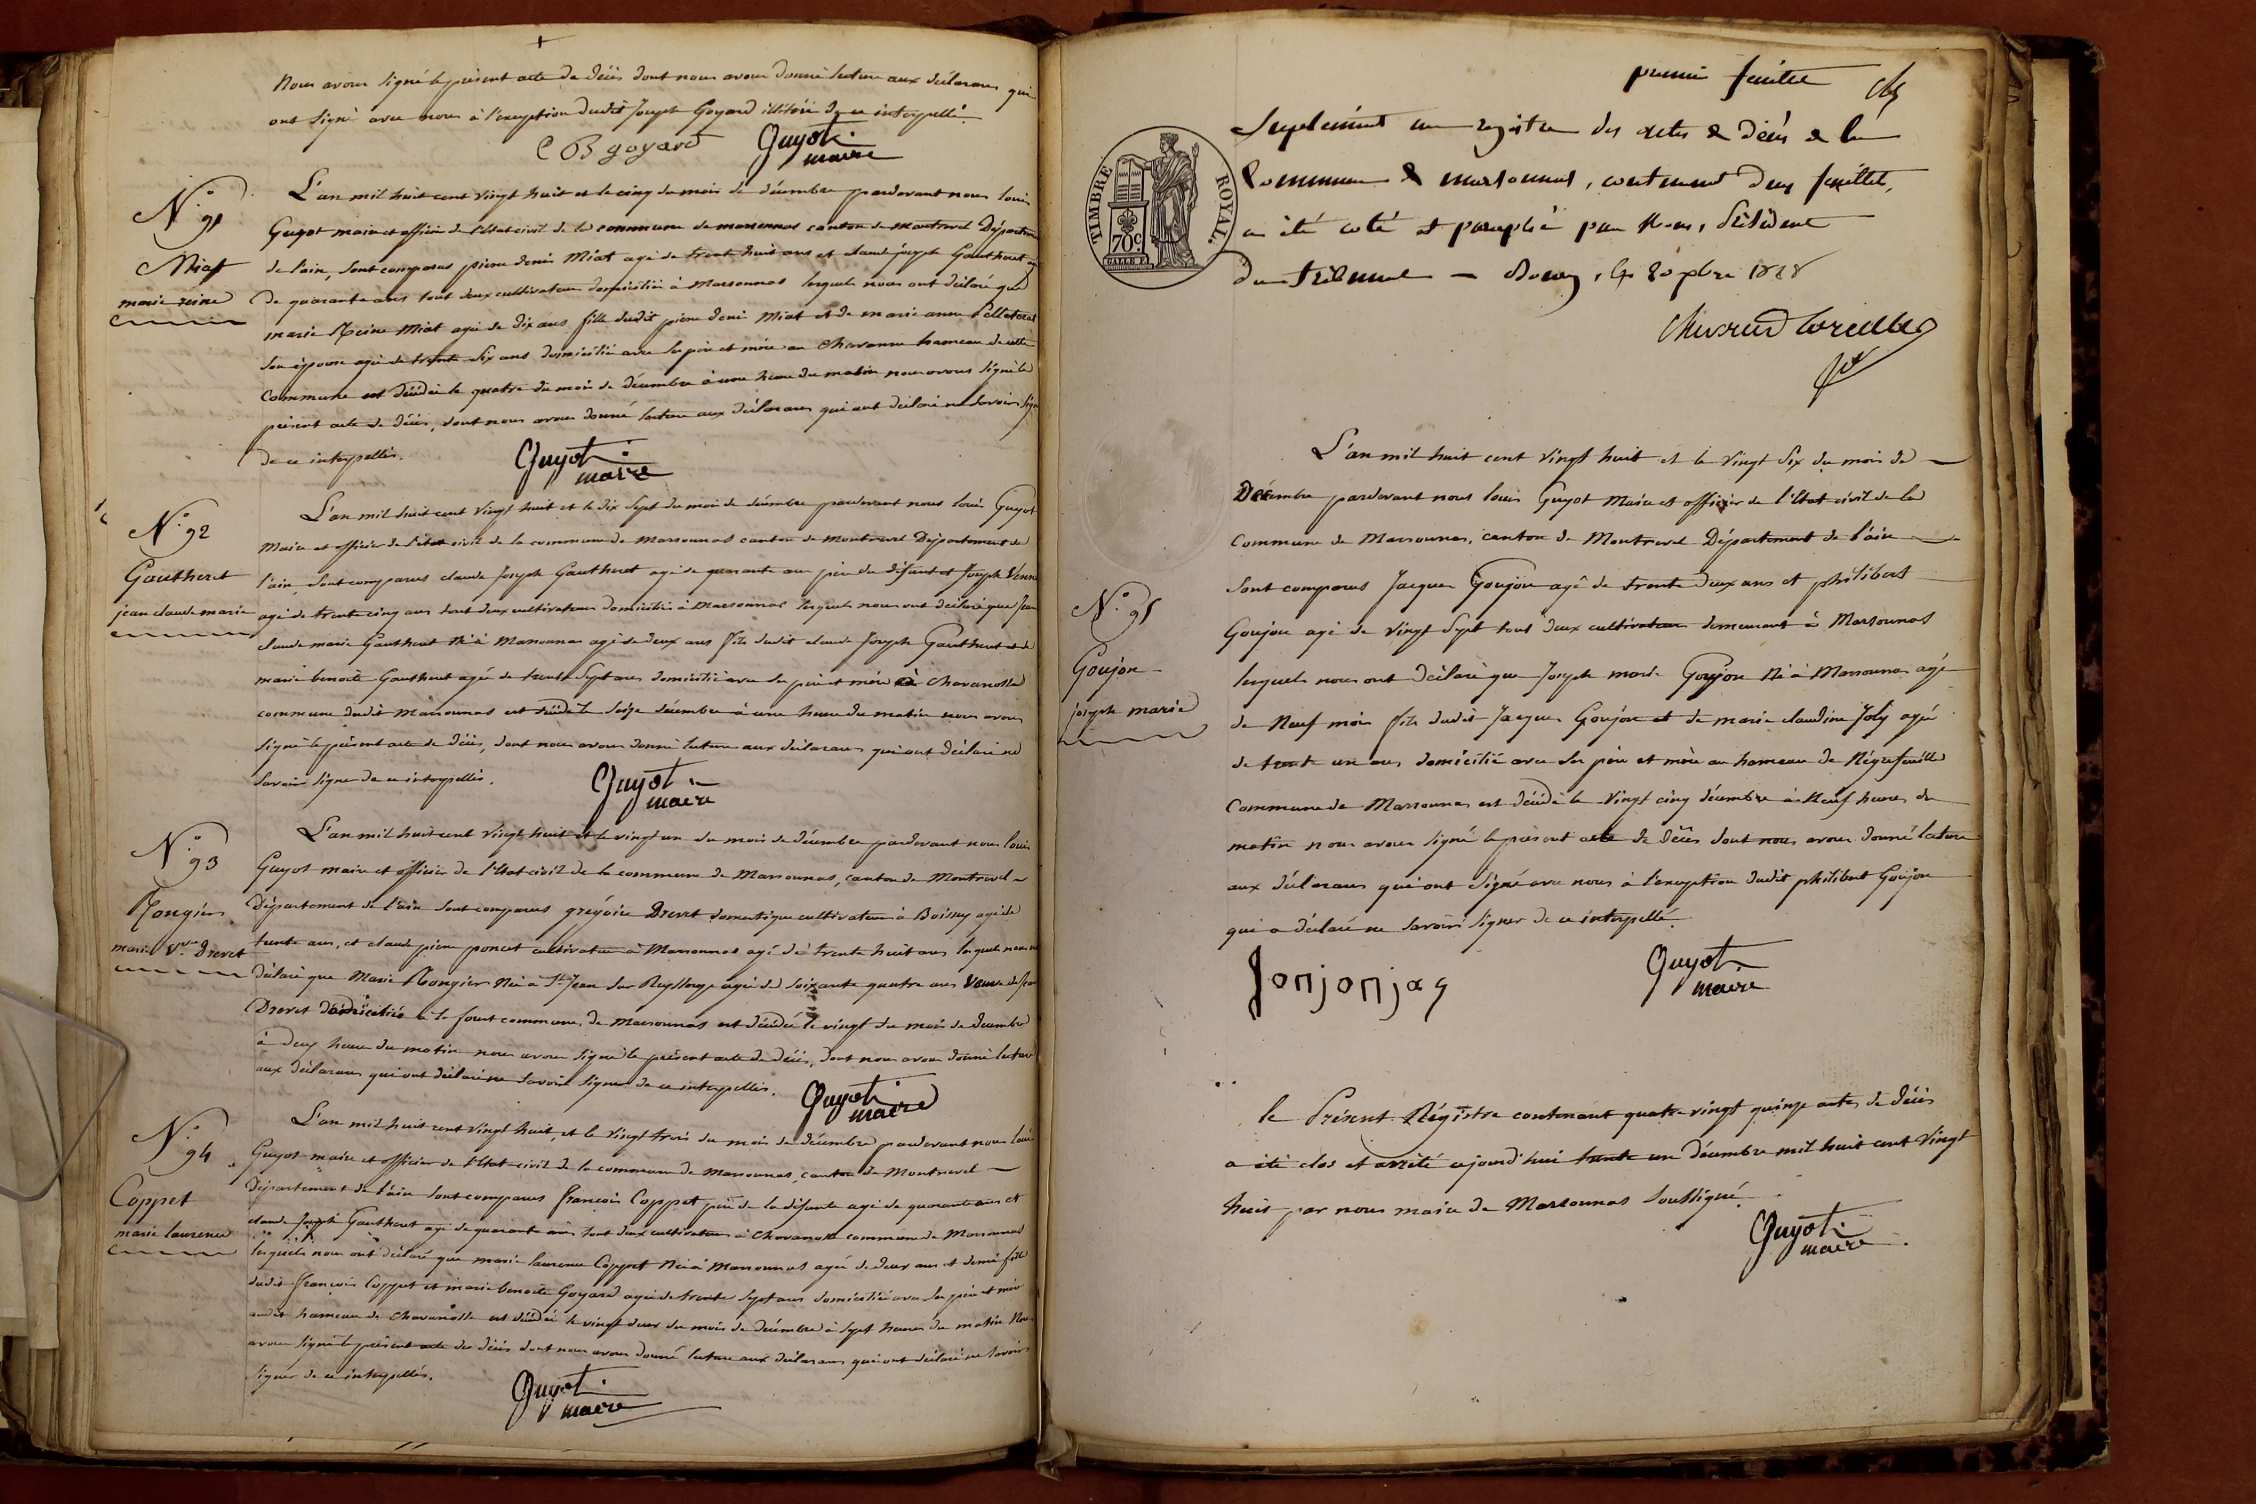 Nous avons signé le présent acte de décès dont nous avons donné lecture aux déclarans qui
ont signé avec nous à l'exception dudit Joseph Goyard illitéré de ce interpellé.
C B goyard Guyot maire
N.° 91
Miat
marie reine
L'an mil huit cent vingt huit et le cinq du mois de décembre pardevant nous louis
Guyot maire et officier de l'état civil de la commune de marsonnas canton de montrevel Départem
de l'ain, sont comparus pierre denis Miat agé de trente huit ans et claude joseph Gautheret agé
de quarante ans tout deux cultivateurs domiciliés à Marsonnas lesquels nous ont déclaré que
marie Reine Miat agée de dix ans fille dudit pierre denis Miat et de marie anne
son épouse agée de trente six ans domiciliée avec ses père et mère au Chavanne hameau de cette
Commune est décédée le quatre du mois de décembre à une heure du matin nous avons signé le
présent acte de décès, dont nous avons donné lecture aux déclarans qui ont déclaré ne savoir signer
de ce interpellés.
Guyot maire
N.° 92
Gautheret
jean claude marie
L'an mil huit cent vingt huit et le dix sept du mois de décembre pardevant nous louis Guyot
Maire et officier de l'état civil de la commune de Marsonnas canton de Montrevel Département de
l'ain, sont comparus claude Joseph Gautheret agé de quarante ans père du défunt et Joseph
agé de trente cinq ans tout deux cultivateurs domiciliés à Marsonnas lesquels nous ont déclaré que Jean
claude marie Gautheret Né à Marsonnas agé de deux ans fils dudit claude Joseph Gautheret et de
marie benoite Gautheret agée de trente sept ans domicilié avec ses père et mère à Chavanolle
commune dudit Marsonnas est décédé le seize décembre à une heure du matin nous avons
signé le présent acte de décès, dont nous avons donné lecture aux déclarans qui ont déclaré ne
savoir signer de ce interpellés.
Guyot maire
N.° 93
Rongier
marie V.ve Drevet
L'an mil huit cent vingt huit et le vingt un du mois de décembre pardevant nous louis
Guyot maire et officier de l'état civil de la commune de Marsonnas, canton de Montrevel
Département de l'ain sont comparus grégoire Drevet domestique cultivateur à Boissey agé de
trente ans, et claude pierre poncet cultivateur à Marsonnas agé de trente huit ans lesquels nous ont
déclaré que Marie Rongier Née à S.t Jean sur Reyssouze agée de soixante quatre ans Veuve de Jean
Drevet domiciliée à le fourt commune de Marsonnas est décédée le vingt du mois de décembre
à deux heures du matin nous avons signé le présent acte de décès, dont nous avons donné lecture
aux déclarans qui ont déclaré ne savoir signer de ce interpellés.
Guyot maire
N.° 94
Coppet
marie laurence
L'an mil huit cent vingt huit, et le vingt trois du mois de décembre pardevant nous louis
Guyot maire et officier de l'état civil de la commune de Marsonnas, canton de Montrevel
Département de l'ain sont comparus françois Coppet père de la défunte agé de quarante ans et
claude Joseph Gautheret agé de quarante ans tout deux cultivateurs à Chavanolle commune de Marsonnas
lesquels nous ont déclaré que marie laurence Coppet Née à Marsonnas agée de deux ans et demi fille
dudit françois Coppet et marie benoite Goyard agée de trente sept ans domiciliée avec ses père et mère
audit hameau de Chavanolle est décédée le vingt deux du mois de décembre à sept heures du matin Nous
avons signé le présent acte de décès dont nous avons donné lecture aux déclarans qui ont déclaré ne savoir
signer de ce interpellés.
Guyot maire
premier feuillet
Suplément au registre des actes de décès de la
Commune de marsonnas, contenant deux feuillets,
a été coté et paraphé par Nous, Président
du tribunal - Bourg, le 20 xbre 1828
TIMBRE ROYAL.
70c
L'an mil huit cent vingt huit et le vingt six du mois de
Décembre pardevant nous louis Guyot Maire et officier de l'état civil de la
Commune de Marsonnas, canton de Montrevel Département de l'ain
N.° 95
Goujon
joseph marie
sont comparus Jacques Goujon agé de trente deux ans et philibert
Goujon agé de vingt sept tout deux cultivateurs demeurant à Marsonnas
lesquels nous ont déclaré que Joseph marie Goujon Né à Marsonnas agé
de Neuf mois fils dudit Jacques Goujon et de marie claudine Joly agée
de trente un ans domicilié avec ses père et mère au hameau de Négrefeuille
Commune de Marsonnas est décédé le vingt cinq décembre à Neuf heures du
matin nous avons signé le présent acte de décès dont nous avons donné lecture
aux déclarans qui ont signé avec nous à l'exception dudit philibert Goujon
qui a déclaré ne savoir signer de ce interpellé.
Jonjonjaq Guyot maire
le Présent Régistre contenant quatre vingt quinze actes de décès
a été clos et arrêté aujourd'hui trente un décembre mil huit cent vingt
huit par nous maire de Marsonnas soussigné.
Guyot maire